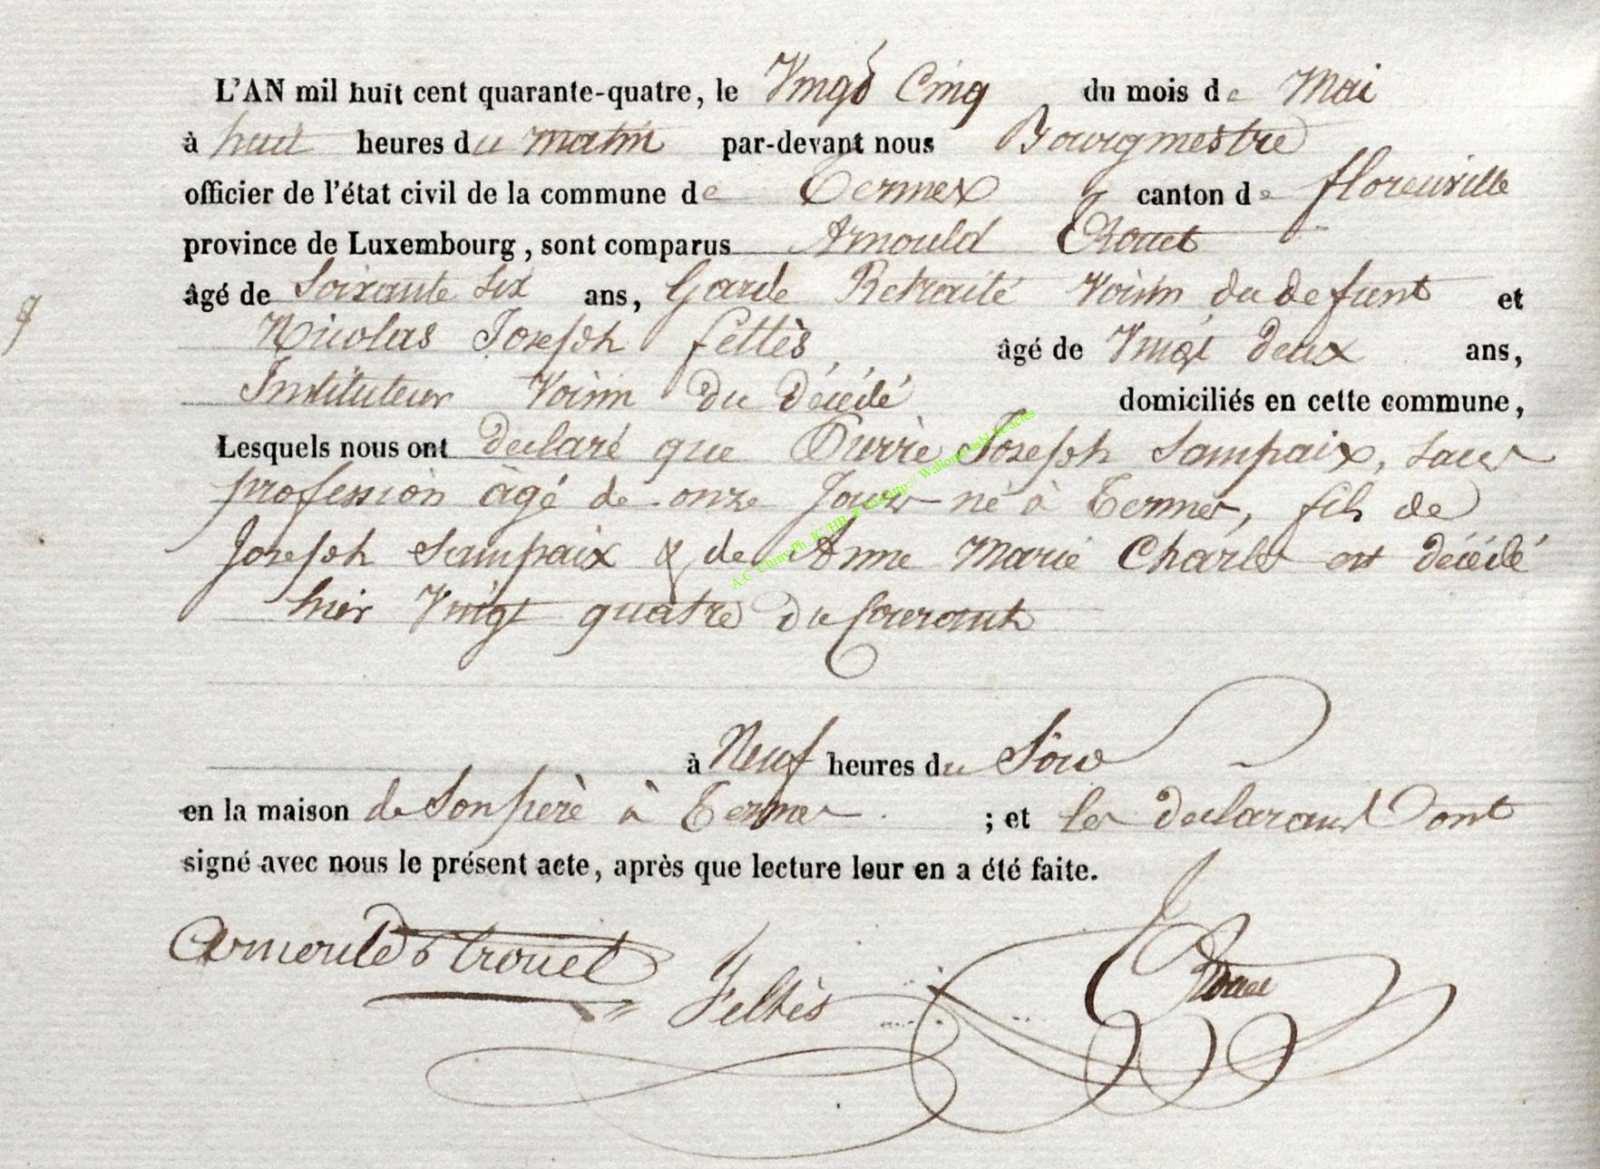 L'AN mil huit cent quarante-quatre, le Vingt Cinq du mois de Mai
à huit heures du matin par-devant nous Bourgmestre
officier de l'état civil de la commune de Termes canton de florenville
province de Luxembourg, sont comparus Arnould
âgé de Soixante Six ans, Garde Retraité Voisin du defunt et
Nicolas Joseph feltès âgé de Vingt deux ans,
Instituteur Voisin du décédé domiciliés en cette commune,
Lesquels nous ont declaré que Joseph Sampaix, sans
profession âgé de onze Jours né à Termes, fils de
Joseph Sampaix & de Anne Marie Charles est décédé
hier Vingt quatre du Courant
à Neuf heures du Soir
en la maison de Son père à Termes ; et les declarans ont
signé avec nous le présent acte, après que lecture leur en a été faite.
Feltès